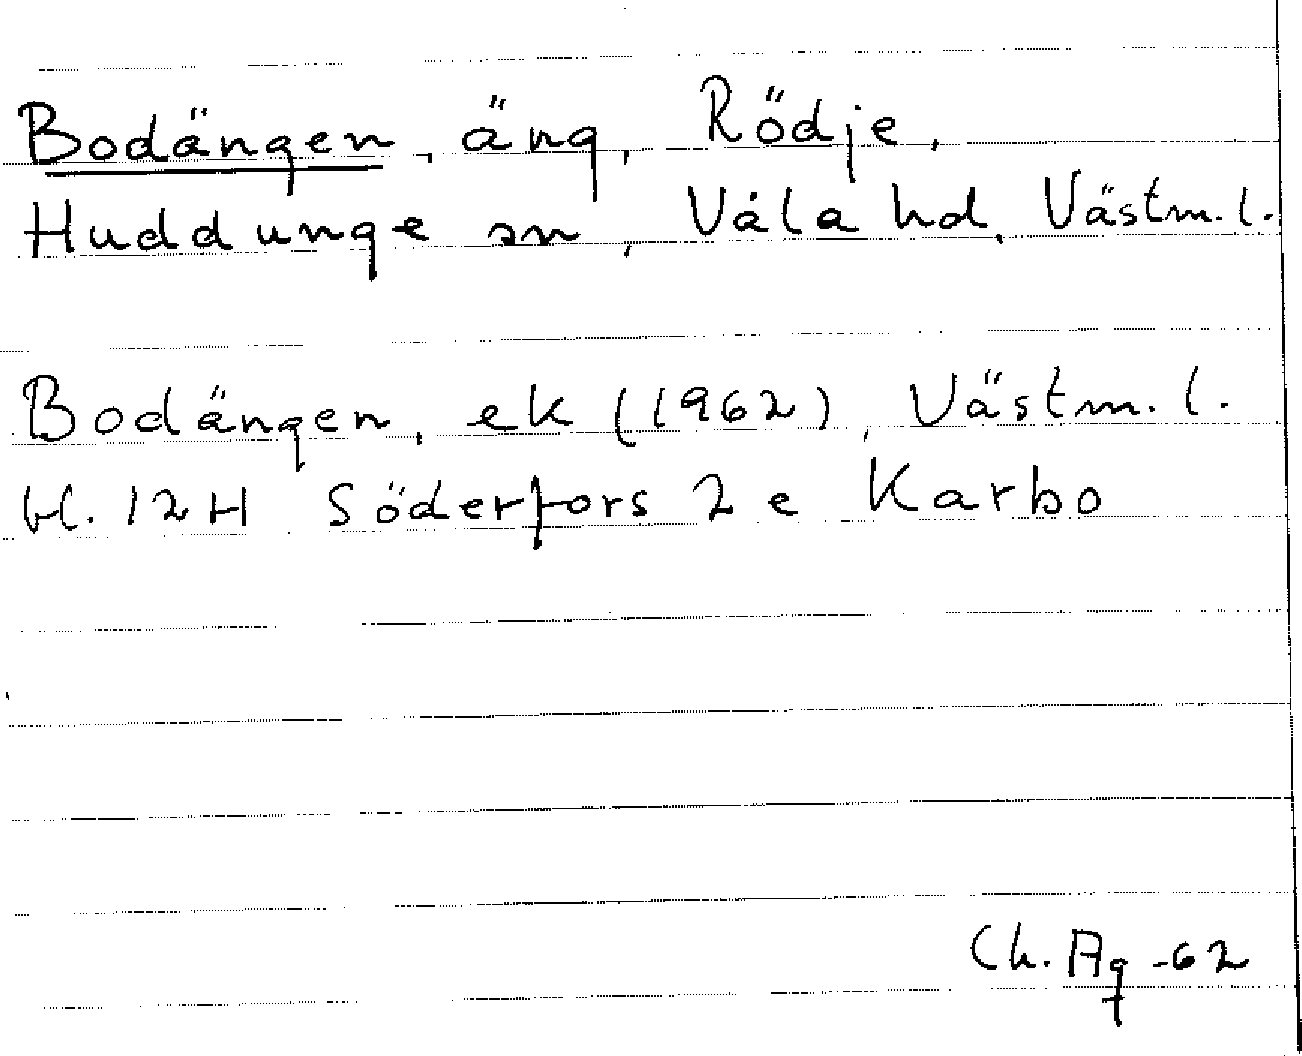 Bodängen, äng, Rödje,
Huddunge sn, Våla hd, Västm. l.
Bodängen, ek (1962), Västm. l.
bl. 12H Söderfors 2 e Karbo
Ch. Ag -62